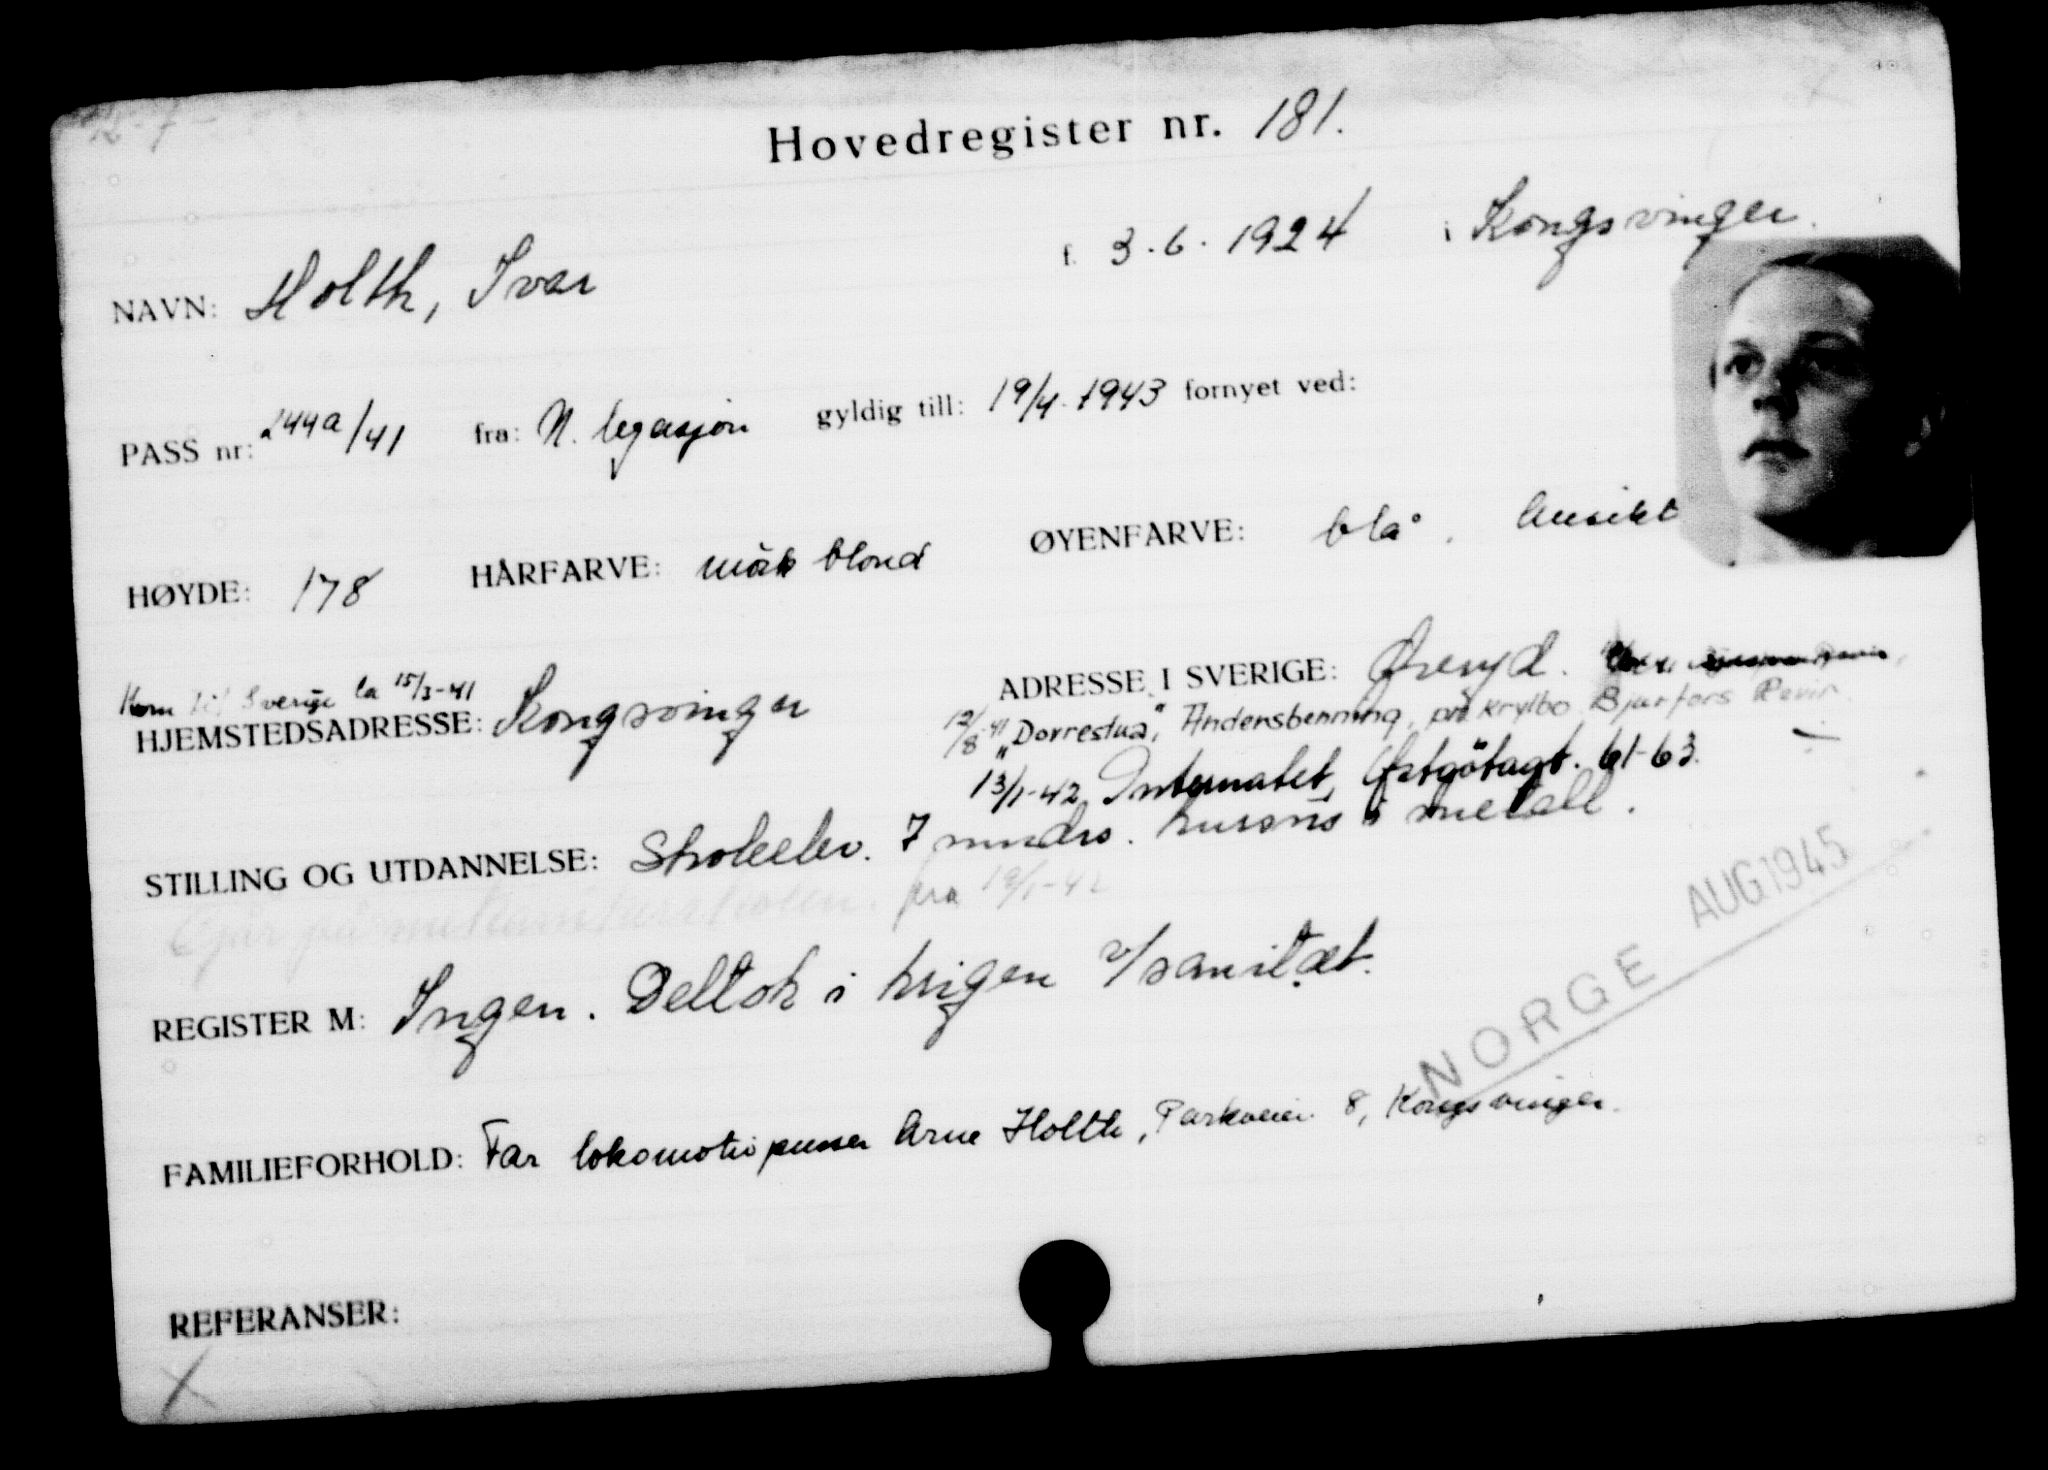 Hovedregister nr. 181.
NAVN: Holth, Ivar f. 3.6.1924 i Kongsvinger.
PASS nr: 244a/41 fra: N. legasjon gyldig till: 19/4-1943 fornyet ved:
HØYDE: 178 HÅRFARVE: mørk blond ØYENFARVE: blå. Ansikt
Kom til Sverige ca 15/3-41
HJEMSTEDSADRESSE: Kongsvinger ADRESSE I SVERIGE: Øreryd.
12/8-41 "Dovrestua", Andersbenning, pr. Krylbo Bjurfors Revir.
13/1-42 Internatet, Østgötagt. 61-63.
STILLING OG UTDANNELSE: Skoleelev. 7 mndrs. kursus i metall.
fra 19/1-42
REGISTER M: Ingen. Deltok i krigen v/sanitæt.
NORGE AUG 1945
FAMILIEFORHOLD: Far lokomotivpusser Arne Holth, Parkveien 8, Kongsvinger.
REFERANSER:
X